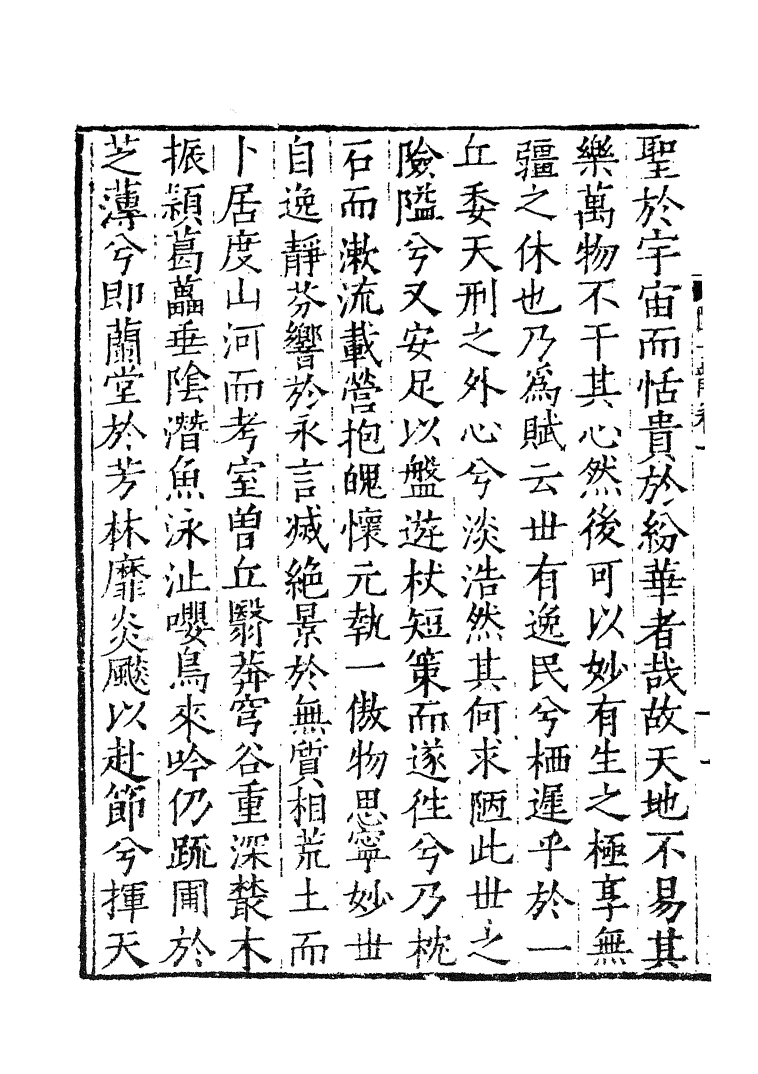 聖於宇宙而恬貴於紛華者哉故天地不易其
樂萬物不干其心然後可以妙有生之極享無
疆之休也乃為賦云世有逸民兮栖遲乎於一
丘委天刑之外心兮淡浩然其何求陋此世之
險隘兮又安足以盤遊杖短策而遂徃兮乃枕
石而漱流載營抱魄懷元執一傲物思寧妙世
自逸靜芬響於永言滅絶景於無質相荒土而
卜居度山河而考室曽丘翳莽穹谷重深藂木
振穎葛藟垂陰潛魚泳沚嚶鳥來吟仍䟽圃於
芝薄兮即蘭堂於芳林靡炎飈以赴節兮揮天